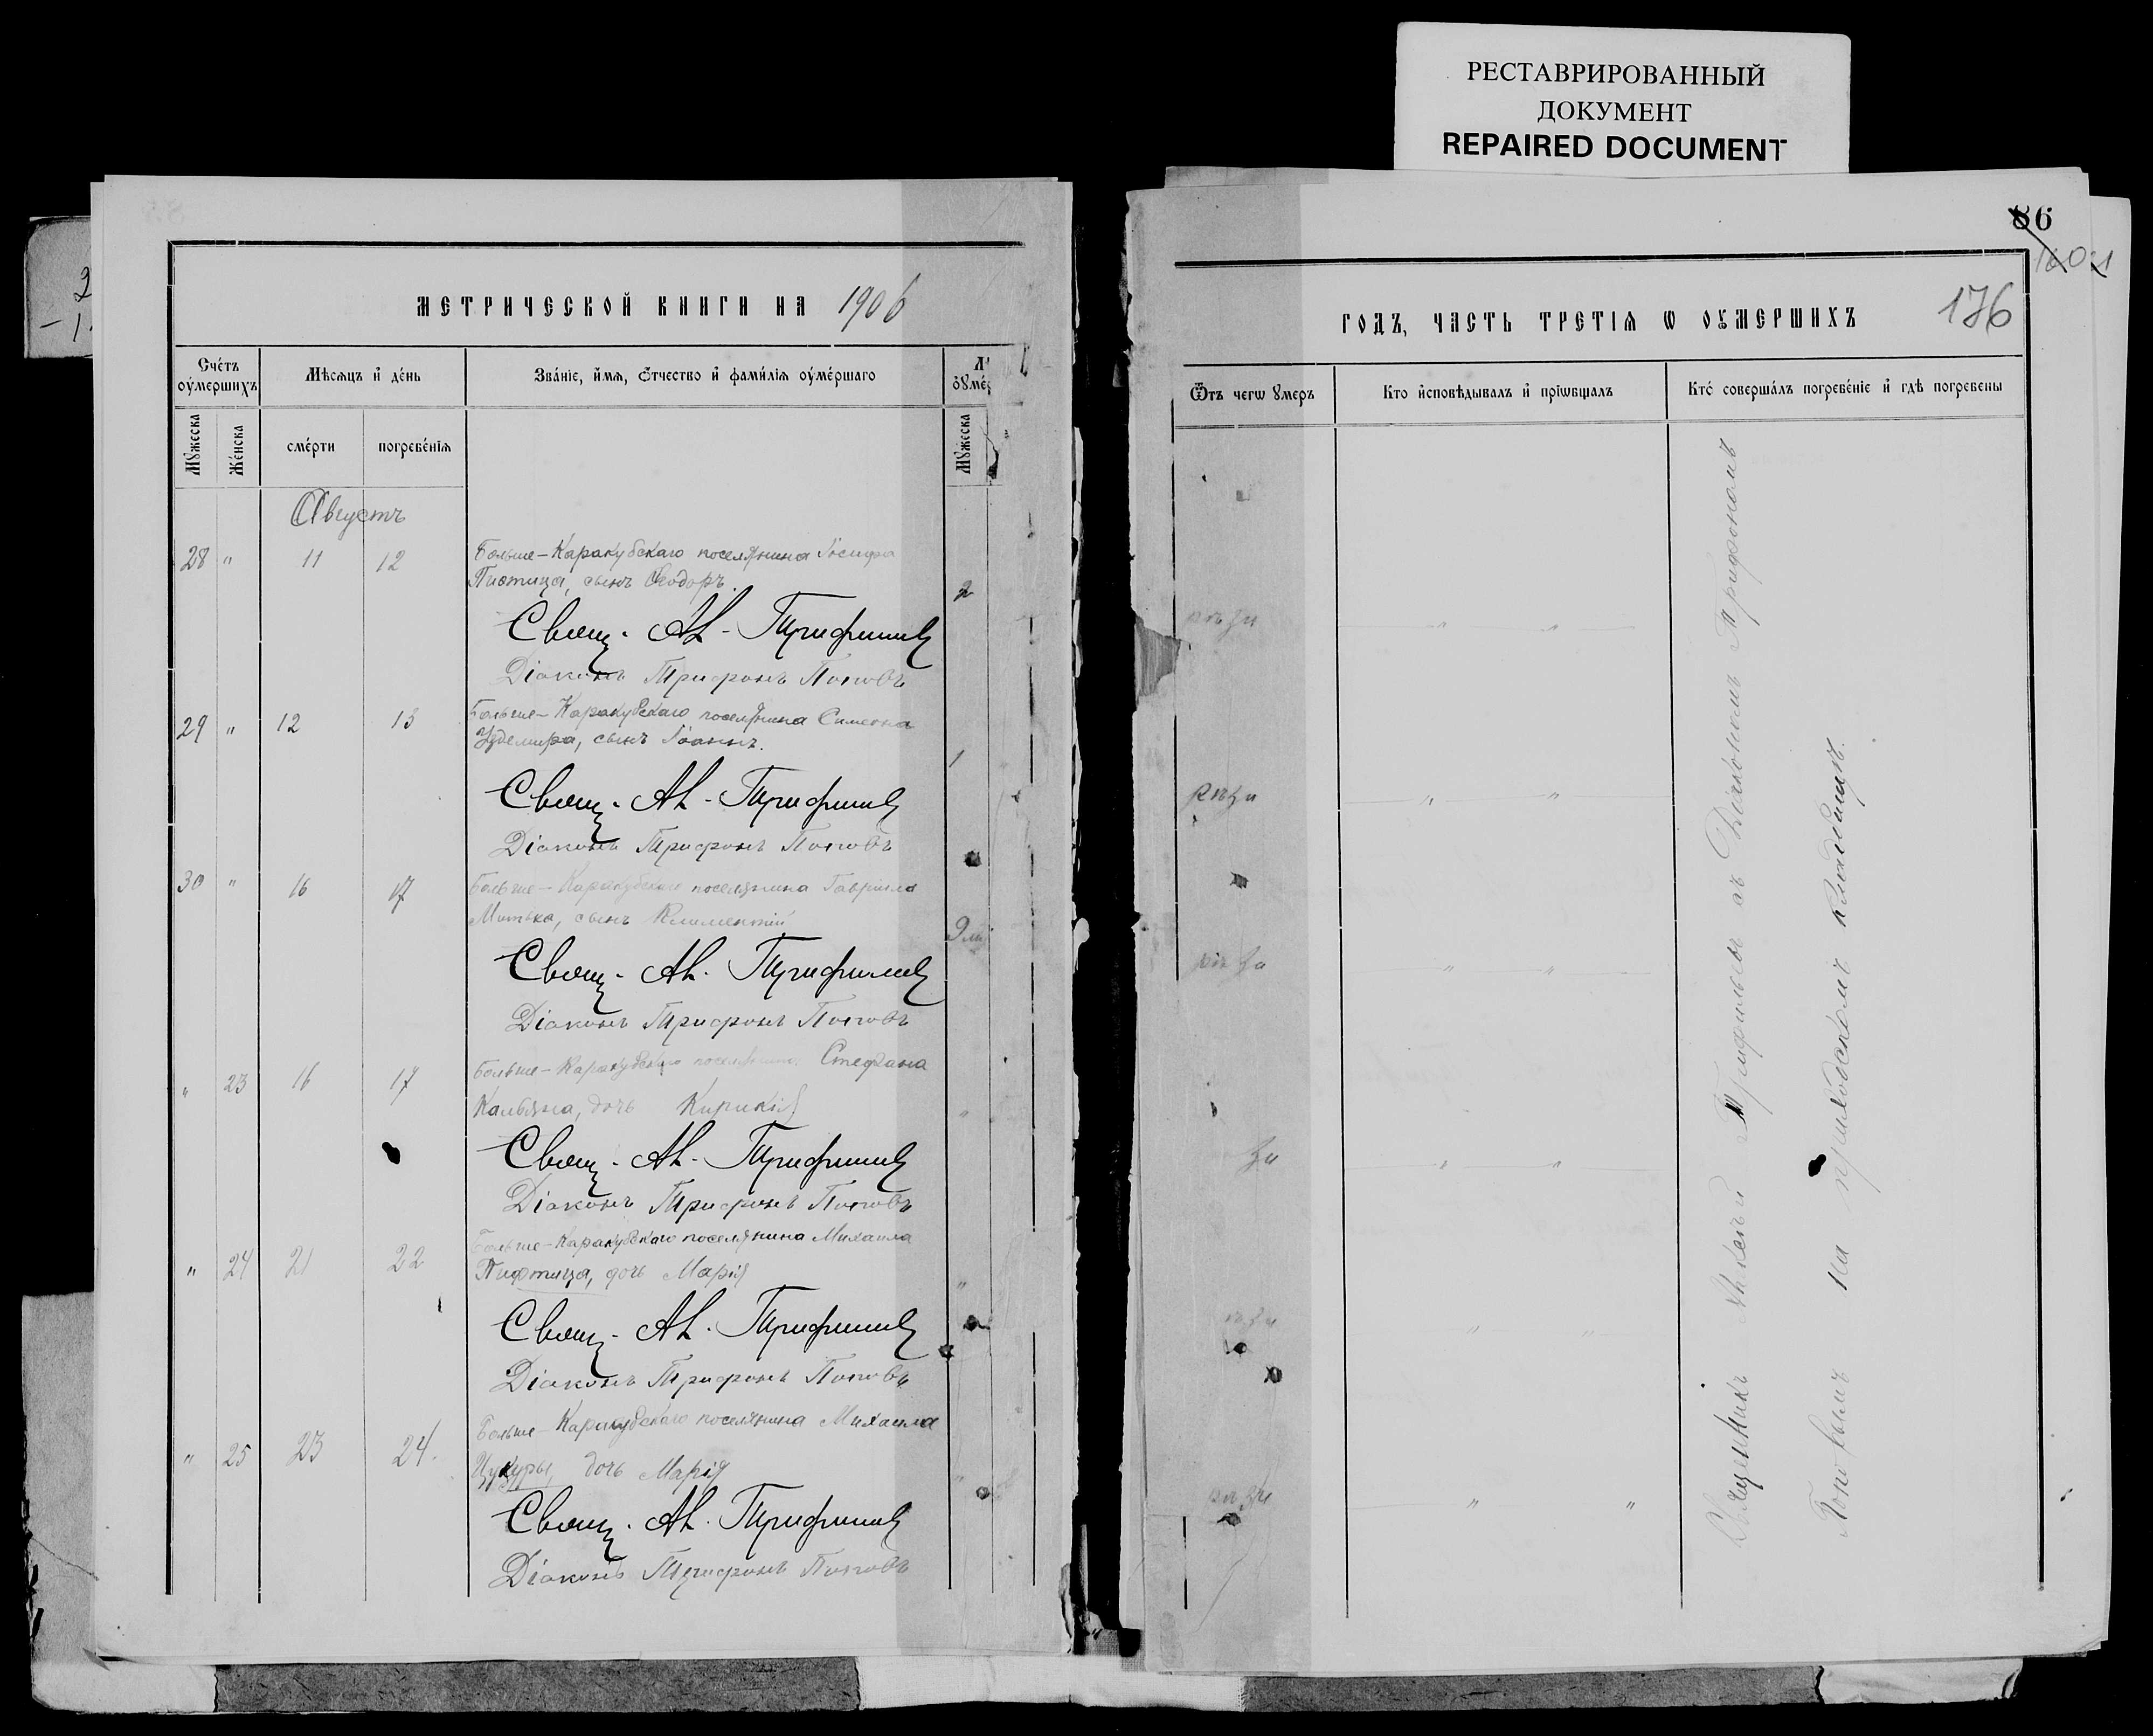 РЕСТАВРИРОВАННЫЙ
ДОКУМЕНТ
REPAIRED DOCUMENT
МЕТРИЧЕСКОЙ КНИГИ НА 1906
Счéтъ оу҆мершихъ
Мѣсѧцъ и҆ дéнь
Звáнїе, и҆́мѧ, ѻ҆́тчество и҆ фами́лїѧ оу҆мéршаго
Мꙋжеска
Жéнска
смéрти
погребéнїѧ
Мꙋжеска
Августъ
28 " 11 12 Больше-Каракубскаго поселянина Іосифа
Пистица, сынъ Ѳеодоръ. 2
Свящ. Ал. Трифильев
Діаконъ Трифонъ Поповъ
29 " 12 13 Больше-Каракубскаго поселянина Симеона
Чудемира, сынъ Іоаннъ. 1
Свящ. Ал. Трифильев
Діаконъ Трифонъ Поповъ
30 " 16 17 Больше-Каракубскаго поселянина Гавріила
Митька, сынъ Климентій 9 м
Свящ. Ал. Трифильев
Діаконъ Трифонъ Поповъ
" 23 16 17 Больше-Каракубскаго поселянина Стефана
дочь Кирикія "
Свящ. Ал. Трифильев
Діаконъ Трифонъ Поповъ
" 24 21 22 Больше-Каракубскаго поселянина Михаила
Пифтица, дочь Марія "
Свящ. Ал. Трифильев
Діаконъ Трифонъ Поповъ
" 25 23 24. Больше-Каракубскаго поселянина Михаила
Цукуры, дочь Марія "
Свящ. Ал. Трифильев
Діаконъ Трифонъ Поповъ
86
176
ГОДЪ, ЧАСТЬ ТРЕТІѦ Ѡ ОУМЕРШИХЪ
Ѿтъ чегѡ ꙋмеръ
Кто и҆сповѣдывалъ и҆ прїѡбщалъ
Ктó совершáлъ погребéнїе и҆ гдѣ погребены
" "
" "
" "
" "
" "
" "
Священникъ Алексѣй Трифильевъ съ Діакономъ Трифономъ
Поповымъ на приходскомъ кладбищѣ.